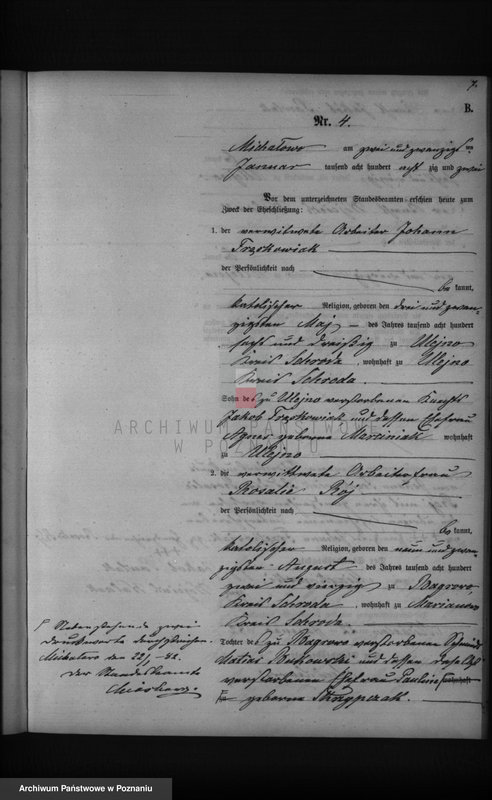 7.
B.
Nr. 4.
Michałowo am zwei und zwanzigsten
Januar tausend acht hundert acht zig und zwei
Vor dem unterzeichneten Standesbeamten erschien heute zum
Zweck der Eheschließung:
1. der verwittwete Arbeiter Johann
Trzotkowiak
der Persönlichkeit nach
be kannt,
katolischer Religion, geboren den drei und zwan-
zigsten Maj des Jahres tausend acht hundert
sechs und dreißig zu Ulejno
Kreis Schroda, wohnhaft zu Ulejno
Kreis Schroda.
Sohn des zu Ulejno verstorbenen Knechts
Jakob Trzotkowiak und dessen Ehefrau
Agnes geborene Marciniak wohnhaft
zu Ulejno
2. die verwittwete Arbeiterfrau
Rosalie Rój
der Persönlichkeit nach
be kannt,
katolischer Religion, geboren den neun und zwan-
zigsten August des Jahres tausend acht hundert
zwei und vierzig zu Bagrowo,
Kreis Schroda, wohnhaft zu Marianowo
Kreis Schroda.
Tochter des zu Bagrowo verstorbenen
Matias und dessen daselbst
verstorbenen Ehefrau Pauline wohnhaft
zu geborne
Nebenstehende zwei
Druckworte durchstrichen.
Michałowo den 22/1 82.
Der Standesbeamte
ARCHIWUM PAŃSTWOWE
W POZNANIU
Archiwum Państwowe w Poznaniu